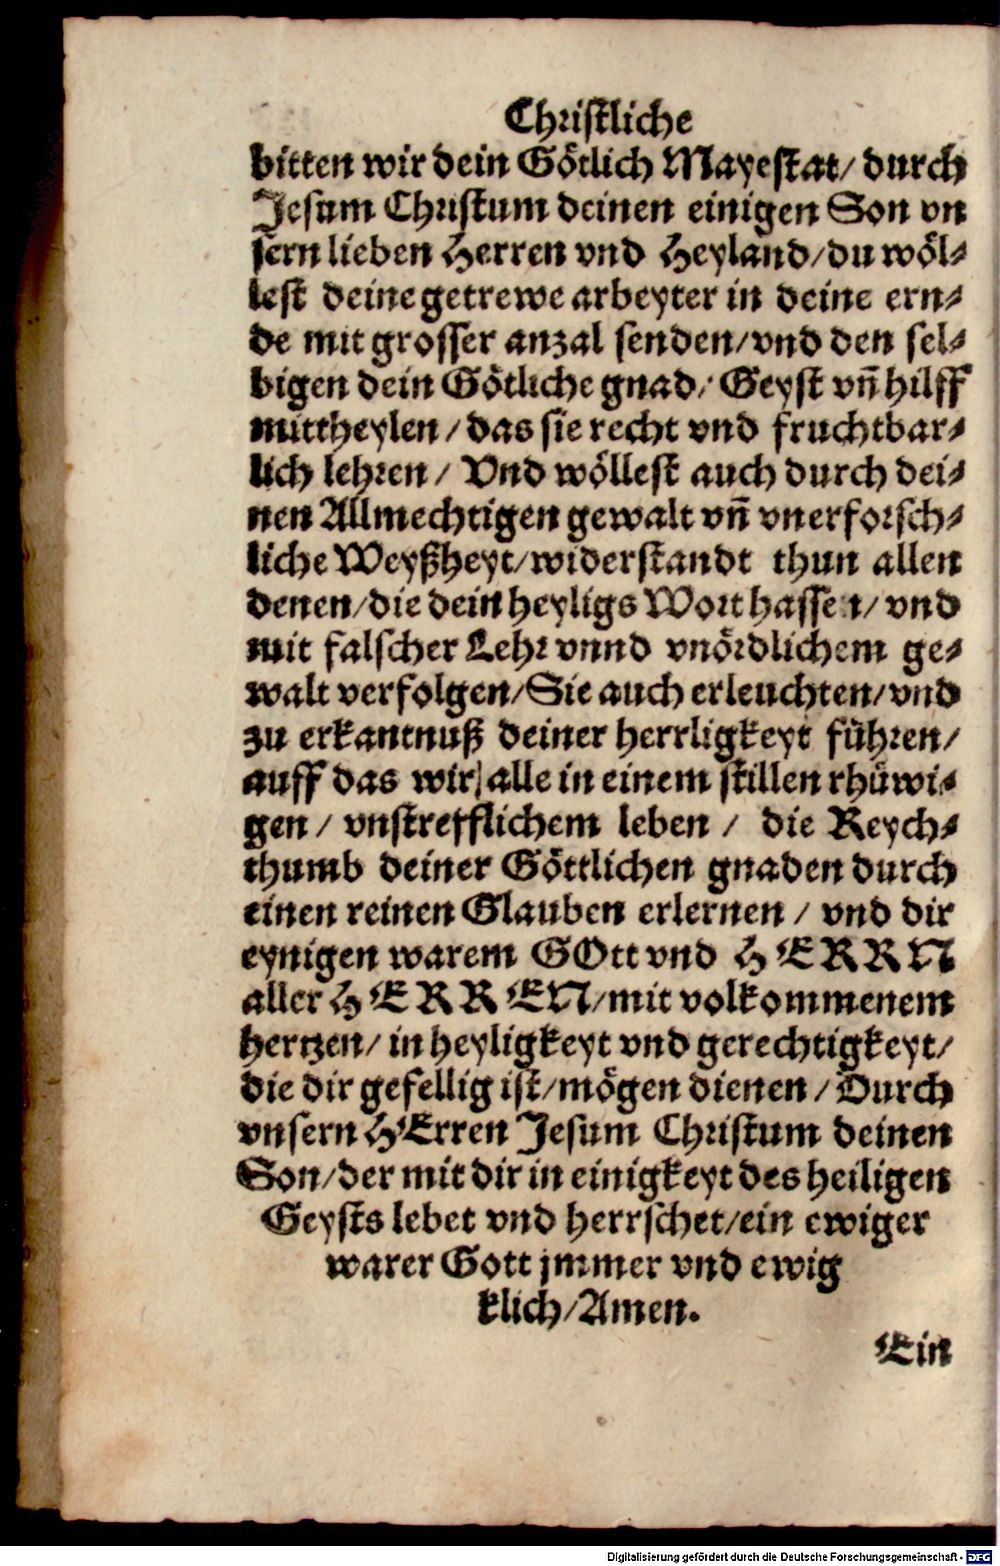 Christliche
bitten wir dein Götlich Mayestat/ durch
Jesum Christum deinen einigen Son vn
sern lieben Herren vnd Heyland/du wöl-
lest deine getrewe arbeyter in deine ern-
de mit grosser anzal senden/vnd den sel-
bigen dein Götliche gnad/ Geyst vn̄ hilff
mittheylen/das sie recht vnd fruchtbar-
lich lehren/ Vnd wöllest auch durch dei-
nen Allmechtigen gewalt vn̄ vnerforsch-
liche Weyßheyt/widerstandt thun allen
denen/die dein heyligs Wort hassen/ vnd
mit falscher Lehr vnnd vnördlichem ge-
walt verfolgen/Sie auch erleuchten/vnd
zu erkantnuß deiner herrligkeyt führen/
auff das wir alle in einem stillen rhüwi-
gen/ vnstrefflichem leben/ die Reych-
thumb deiner Göttlichen gnaden durch
einen reinen Glauben erlernen/ vnd dir
eynigen warem GOtt vnd HERRN
aller HERREN/mit volkommenem
hertzen/ in heyligkeyt vnd gerechtigkeyt/
die dir gefellig ist/mögen dienen/ Durch
vnsern HErren Jesum Christum deinen
Son/der mit dir in einigkeyt des heiligen
Geysts lebet vnd herrschet/ein ewiger
warer Gott jmmer vnd ewig
klich/Amen.
Ein
Digitalisierung gefördert durch die Deutsche Forschungsgemeinschaft - DFG